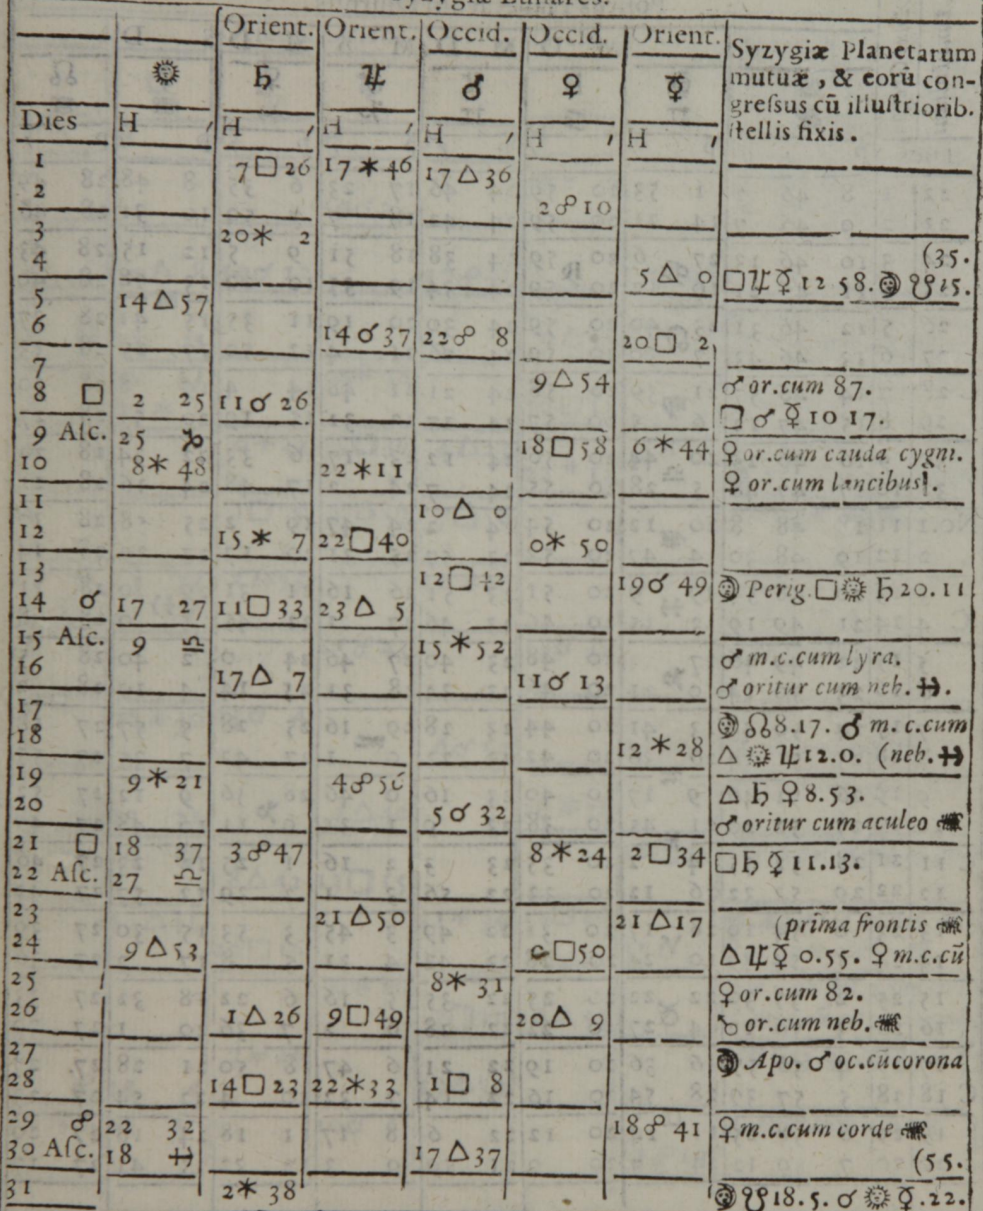 Syzygiæ Lunares.
Orient. Orient. Occid. Occid. Orient. Syzygiæ Planetarum
☉ ♄ ♃ ♂ ♀ ☿ mutuæ, & eorũ con-
greſsus cũ illuſtriorib.
Dies H ′ H ′ H ′ H ′ H ′ H ′ ſtellis fixis.
1 7 □ 26 17 ⚹ 46 17 △ 36
2 2 ☍ 10
3 20 ⚹ 2
4 5 △ 0 (35.
□ ♃ ☿ 12 58. ☽ ☋ 15.
5 14 △ 57
6 14 ☌ 37 22 ☍ 8 20 □ 2
7
8 □ 2 25 11 ☌ 26 9 △ 54 ♂ or.cum 87.
□ ♂ ☿ 10 17.
9 Aſc. 25 ♑ 18 □ 58 6 ⚹ 44 ♀ or.cum cauda cygni.
10 8 ⚹ 48 22 ⚹ 11 ♀ or.cum lancibus.
11 10 △ 0
12 15 ⚹ 7 22 □ 40 0 ⚹ 50
13 12 □ 42 19 ☌ 49 ☽ Perig. □ ☉ ♄ 20.11
14 ☌ 17 27 11 □ 33 23 △ 5
15 Aſc. 9 ♎ 15 ⚹ 52 ♂ m.c.cum lyra.
16 17 △ 7 11 ☌ 13 ♂ oritur cum neb. ♓.
17 ☽ ☊ 8.17. ♂ m.c.cum
18 12 ⚹ 28 △ ☉ ♃ 12.0. (neb. ♓
19 9 ⚹ 21 4 ☍ 56 △ ♄ ♀ 8.53.
20 5 ☌ 32 ♂ oritur cum aculeo ♏
21 □ 18 37 3 ☍ 47 8 ⚹ 24 2 □ 34 □ ♄ ☿ 11.13.
22 Aſc. 27 ♎
23 21 △ 50 21 △ 17 (prima frontis ♏
24 9 △ 53 □ 50 △ ♃ ☿ 0.55. ♀ m.c.cũ
25 8 ⚹ 31 ♀ or.cum 82.
26 1 △ 26 9 □ 49 20 △ 9 or.cum neb. ♏
27 ☽ Apo. ♂ oc.cũ corona
28 14 □ 23 22 ⚹ 33 1 □ 8
29 ☍ 22 32 18 ☍ 41 ♀ m.c.cum corde ♏
30 Aſc. 18 ♓ 17 △ 37 (55.
31 2 ⚹ 38 ☽ ☋ 18.5. ☌ ☉ ☿ .22.